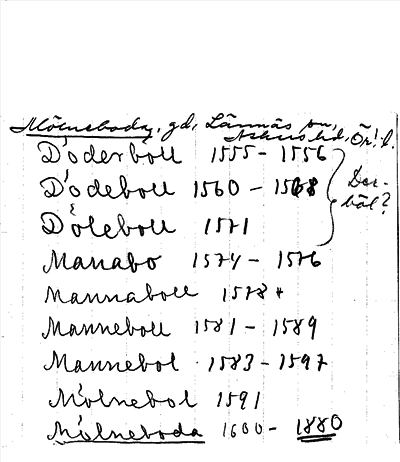 Mölneboda, gd, Lännäs sn,
Askers hd, Ör. l.
Döderböll 1555 - 1556
Dödeboll 1560 - 1568
Döleboll 1571
Der-
böl?
Manabo 1574 - 1576
Mannaboll 1578 +
Manneboll 1581 - 1589
Mannebol 1583 - 1597
Mölnebol 1591
Mölneboda 1600 - 1880